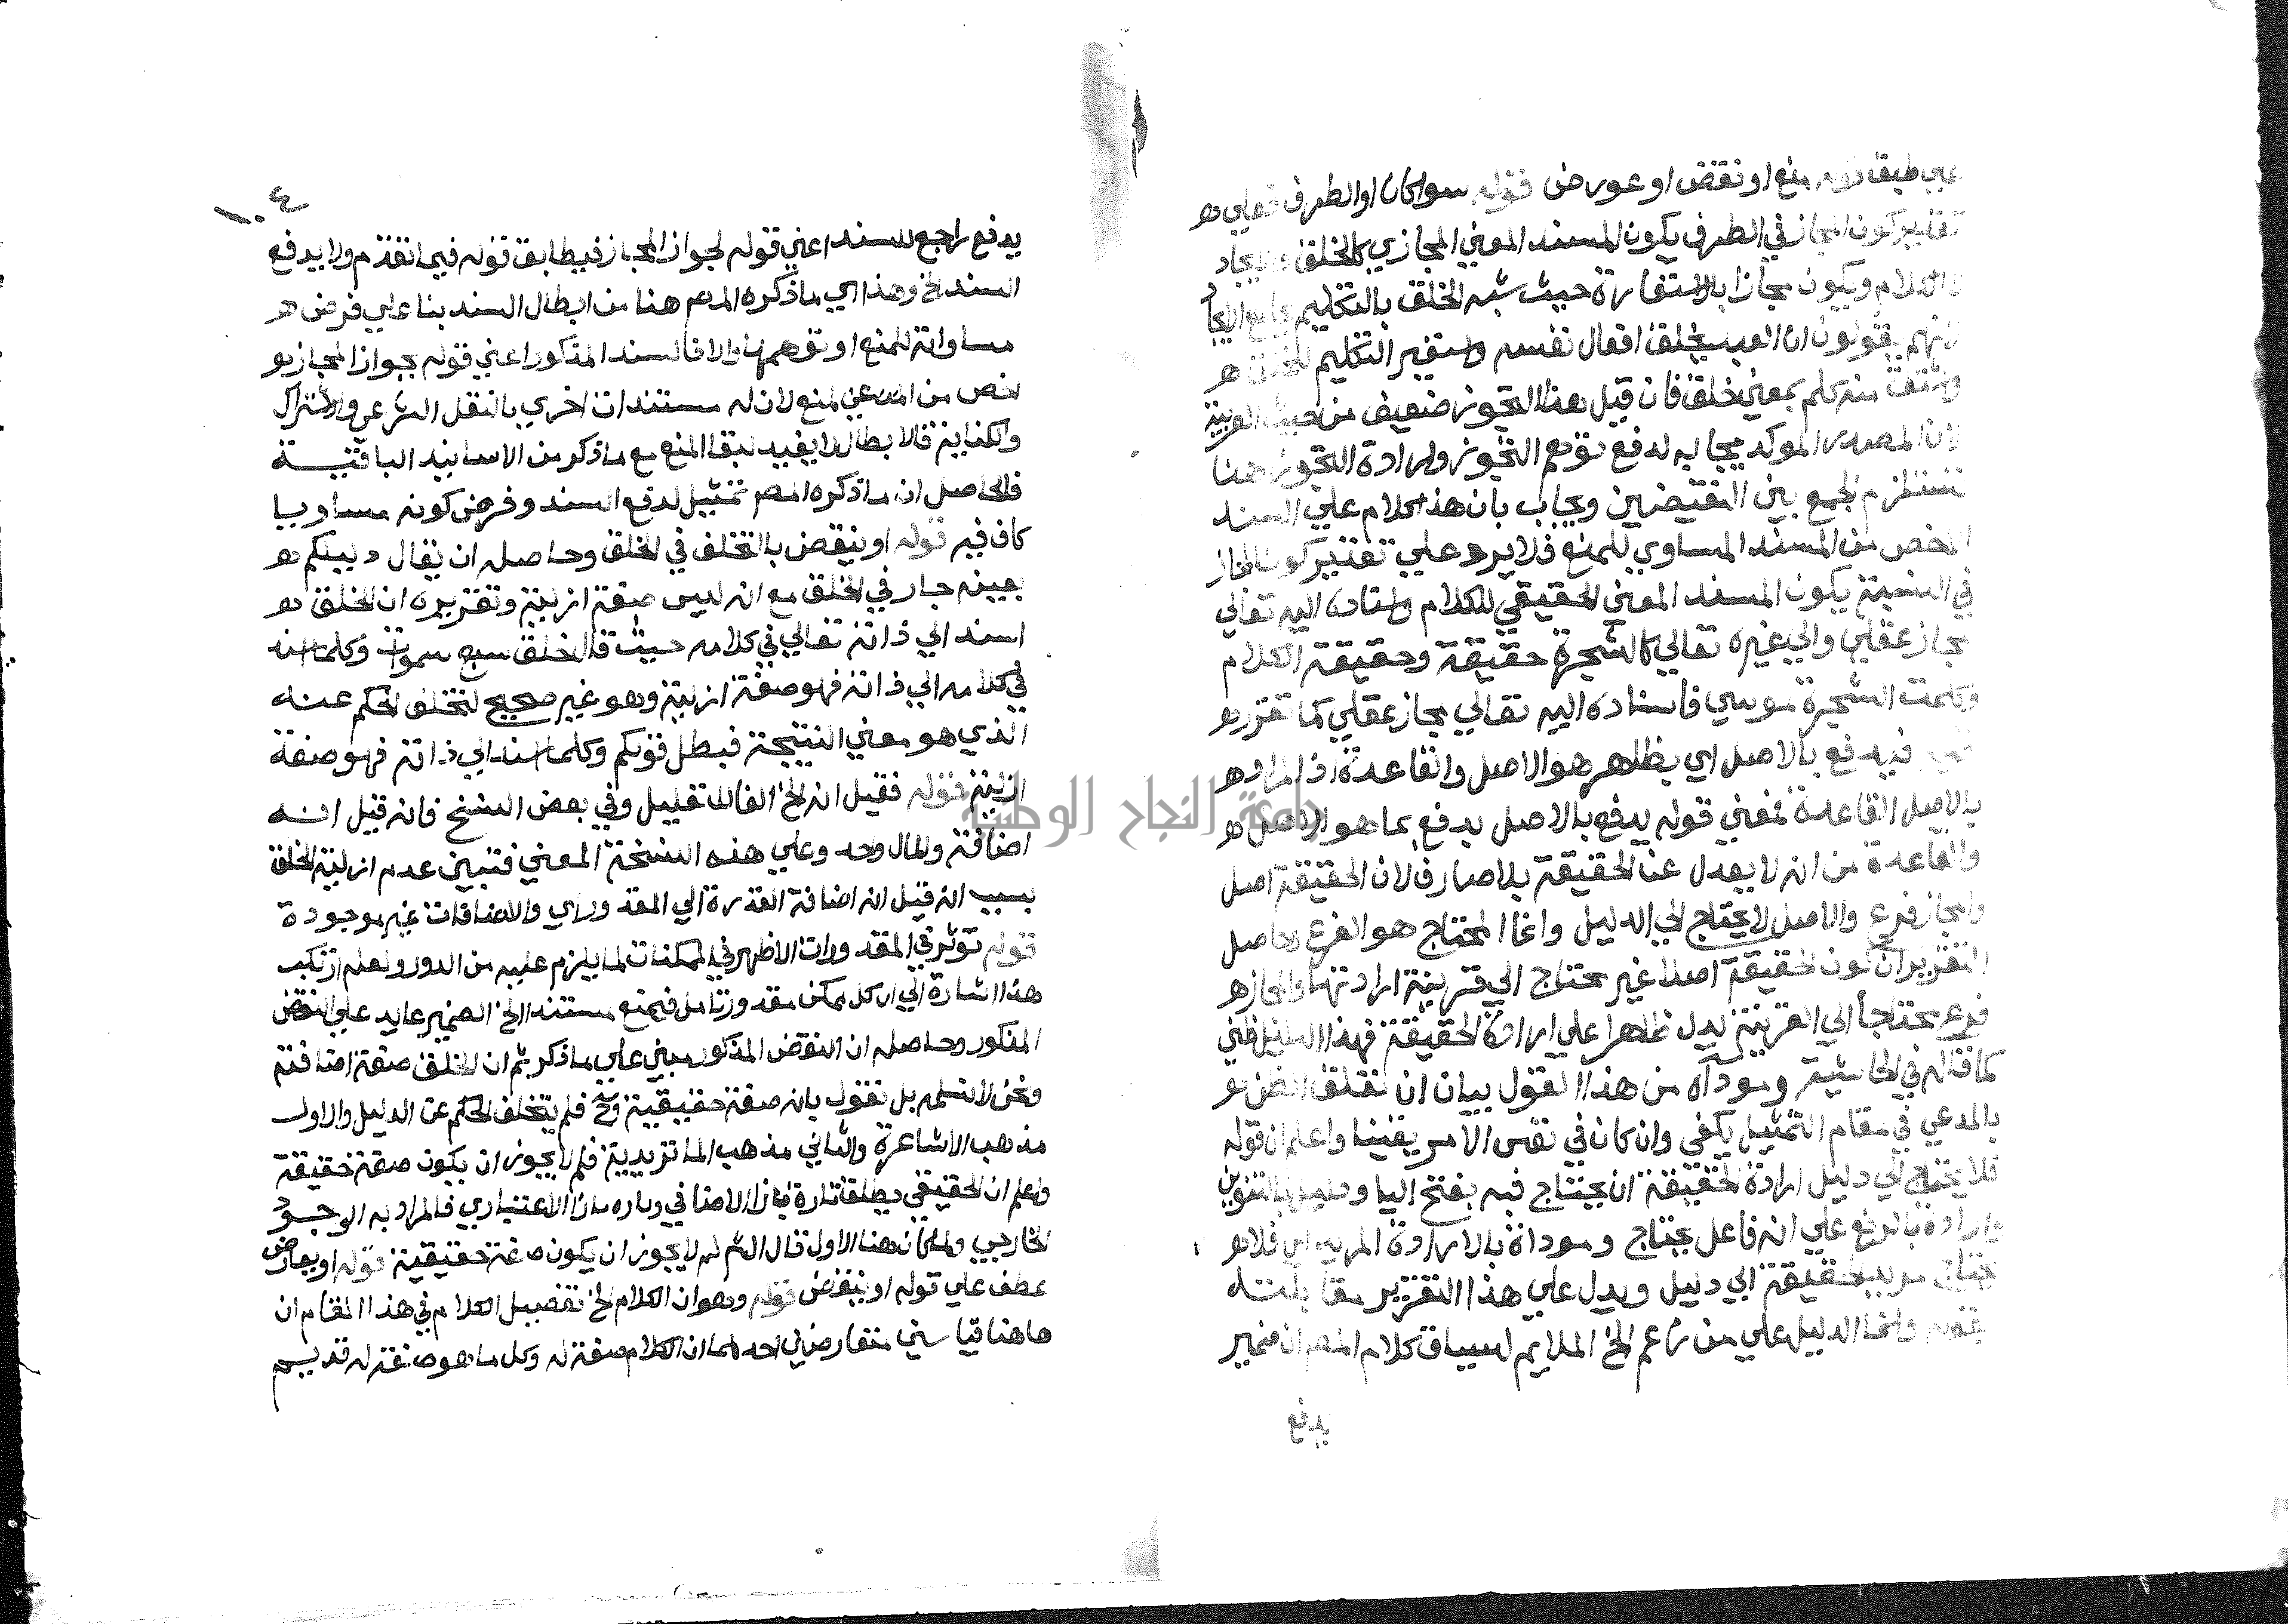 علي طبق قوله منع او نقض او عورض قوله سواكان اوالطرف فعلي
تقدير كون المجاز في الطرف يكون المسند المعني المجازي كالخلق والايجاد
الكلام ويكون مجازا بالاستعارة حيث شبه الخلق بالتكليم بجامع الايجاد
لانهم يقولون ان العبد يخلق افعال نفسه واستعير التكليم للخلق
واشتق منه كلم بمعني خلق فان قيل هذا التجوز ضعيف من حيث العربية
لان المصدر الموكد يجابه لدفع توهم التجوز وارادة التجوز هنا
تستلزم الجمع بين النقيضين ويجاب بان هذا كلام علي السند
الاخص من المسند المساوي للمنع فلا يرد علي تقدير كون المجاز
في النسبة يكون المسند المعني الحقيقي للكلام واسناده اليه تعالي
مجاز عقلي والي غيره تعالي كالشجرة حقيقة وحقيقة الكلام
وكلمت الشجرة موسي فاسناده اليه تعالي مجاز عقلي كما تقرر
فيدفع بالاصل اي يظاهر هو الاصل والقاعدة اذ المراد
بالاصل القاعدة فمعني قوله يدفع بالاصل يدفع بما هو الاصل
والقاعدة من انه لا يعدل عن الحقيقة بلا صارف لان الحقيقة اصل
والمجاز فرع والاصل لا يحتاج الي الدليل وانما المحتاج هو الفرع وحاصل
التقرير ان كون الحقيقة اصلا غير محتاج الي قرينة ارادتها والمجاز
فرع محتاجا الي القرينة يدل ظاهرا علي ارادة الحقيقة فهذا الدليل ظني
كما قاله في الحاشية وموداه من هذا القول بيان ان تعلق الظن
بالمدعي في مقام التمثيل يكفي وان كان في نفس الامر يقينيا واعلم ان قوله
فلا يحتاج الي دليل ارادة الحقيقة ان يحتاج فيه بفتح اليا ودليل بالتنوين
وارادة بالرفع علي انه فاعل يحتاج وموداة بالارادة المريد اي فلا
يحتاج مريد الحقيقة الي دليل ويدل علي هذا التقرير مقابلته
بقوله وانما الدليل علي من زاعم الخ الملايم لسياق كلام المصم ان ضمير
يدفع
١٠٤
يدفع راجع للسند اعني قوله لجواز المجاز فيطابق قوله فيما تقدم ولا يدفع
السند الخ وهذا اي ما ذكره المصم هنا من ابطال السند بنا علي فرض
مساواته للمنع او توهمها والا فالسند المذكور اعني قوله بجواز المجاز
اخص من المدعي لمنع لان له مستندات اخري بالنقل الشرعي والاشتراك
والكناية فالابطال لا يفيد لبقا المنع مع ما ذكر من الاسانيد الباقية
فالحاصل ان ما ذكره المصم تمثيل لدفع السند وفرض كونه مساويا
كاف فيه قوله او ينقض بالتخلف في الخلق وحاصله ان يقال دليلكم
بعينه جار في الخلق مع انه ليس صفة ازلية وتقريره ان الخلق
اسند الي ذاته تعالي في كلامه حيث قال خلق سبع سموات وكلما اسند
في كلامه الي ذاته فهو صفة ازلية وهو غير صحيح لتخلف الحكم عنه
الذي هو معني النتيجة فبطل قولكم وكلما اسند الي ذاته فهو صفة
ازلية قوله فقيل انه الخ الفا للتعليل وفي بعض النسخ فانه قيل انه
اضافة والمال واحد وعلي هذه النسخة المعني فتبين عدم ازلية الخلق
بسبب انه قيل انه اضافة القدرة الي المقدوراي والاضافات غير موجودة
قوله توثر في المقدورات الاظهر في الممكنات لما يلزم عليه من الدور ولعله ارتكب
هذا اشارة الي ان كل ممكن مقدور تامل فيمنع مستندا الخ الضمير عايد علي النقض
المذكور وحاصله ان النقض المذكور مبني علي ما ذكر ثم ان الخلق صفة اضافية
ونحن لا نسلمه بل نقول بانه صفة حقيقية وح فلم يتخلف الحكم عن الدليل والاول
مذهب الاشاعرة والثاني مذهب الماتريدية فلم لا يجوز ان يكون صفة حقيقة
واعلم ان الحقيقي يطلق تارة بازا الاضافي وتاره بازا الاعتباري فالمراد به الوجود
الخارجي ولما كان هنا الاول قال الشم لم لا يجوز ان يكون صفة حقيقية قوله او يعارض
عطف علي قوله او ينقض قوله وهو ان الكلام الخ تفصيل الكلام في هذا المقام ان
هاهنا قياسين متعارضين احدهما ان الكلام صفة له وكل ما هو صفة له قديم
جامعة النجاح الوطنية